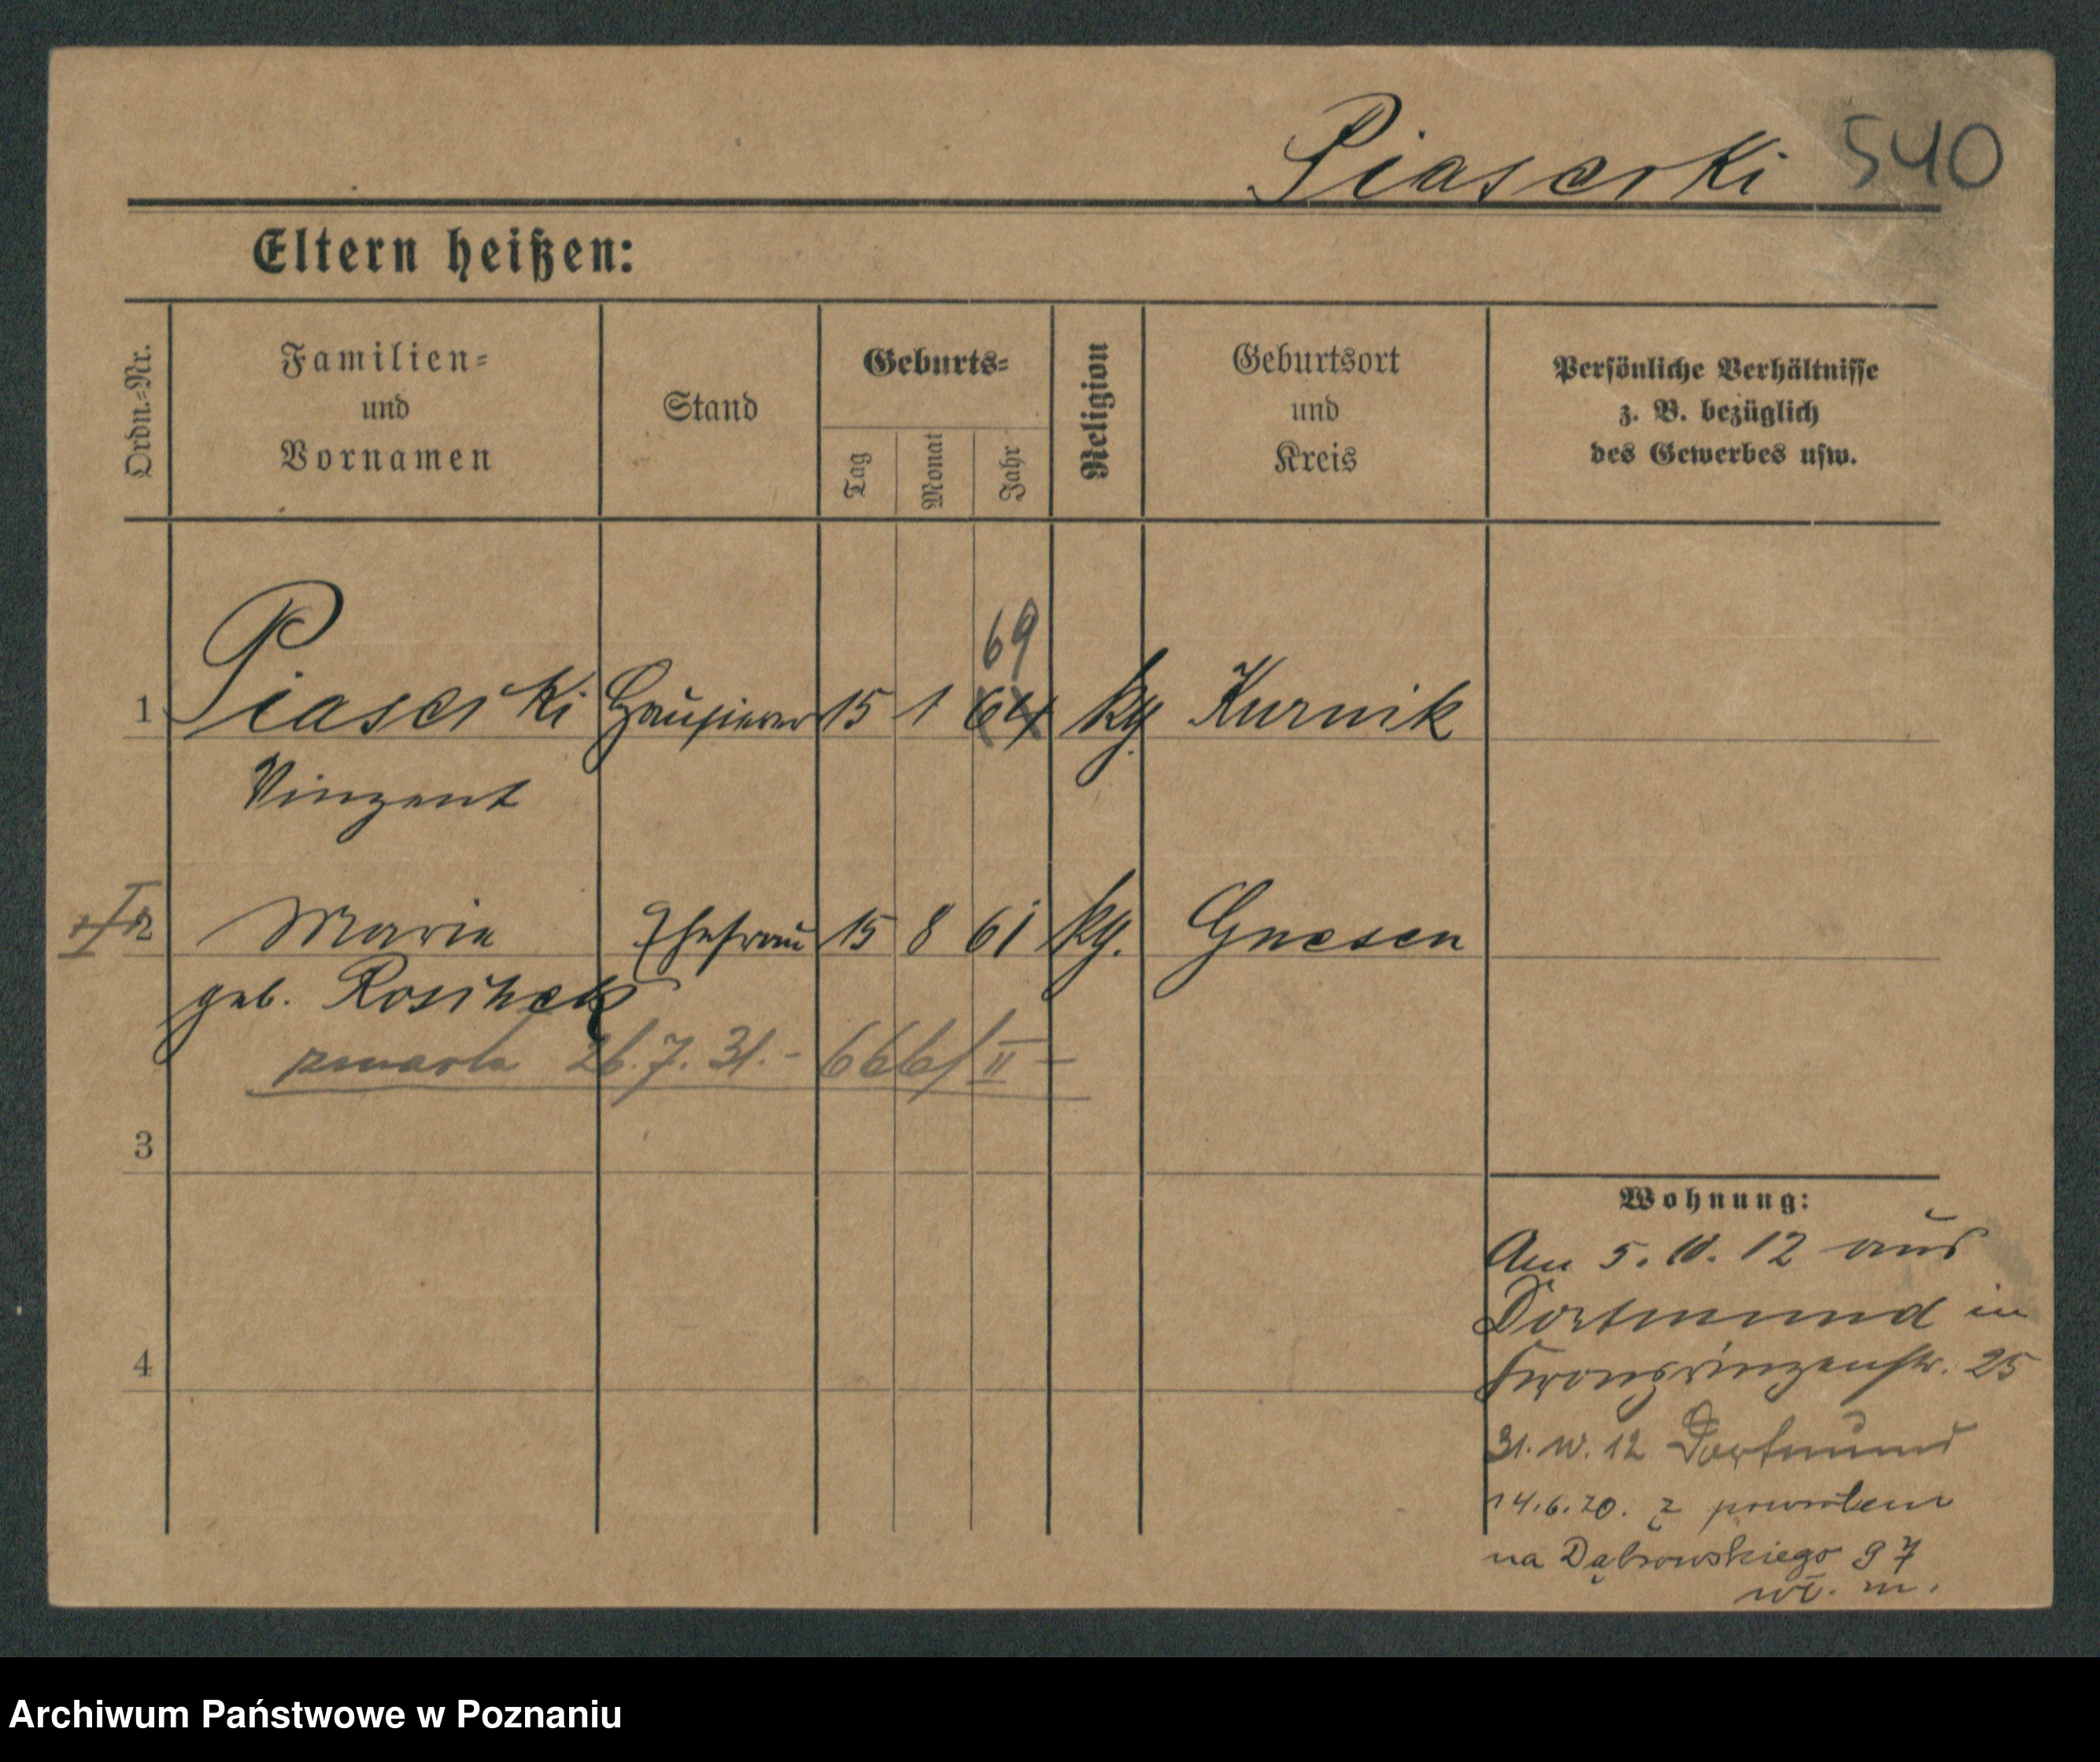 Piaseski 540
Eltern heißen:
Ordn.-Nr.
Familien-
und
Vornamen
Stand
Geburts-
Tag
Monat
Jahr
Religion
Geburtsort
und
Kreis
Persönliche Verhältnisse
z. B. bezüglich
des Gewerbes usw.
69
1 Piaseski Hausierer 15 1 64 kg Kurnik
Vinzent
2 Marie Ehefrau 15 8 61 kg. Gnesen
geb.
zmarła 26.7.31.- 666/II -
3
4
Wohnung:
Am 5. 10. 12 aus
Dortmund in
Kronprinzenstr. 25
31. 10. 12 Dortmund
14.6.20. z powrotem
na Dąbrowskiego 97
wł. m.
Archiwum Państwowe w Poznaniu